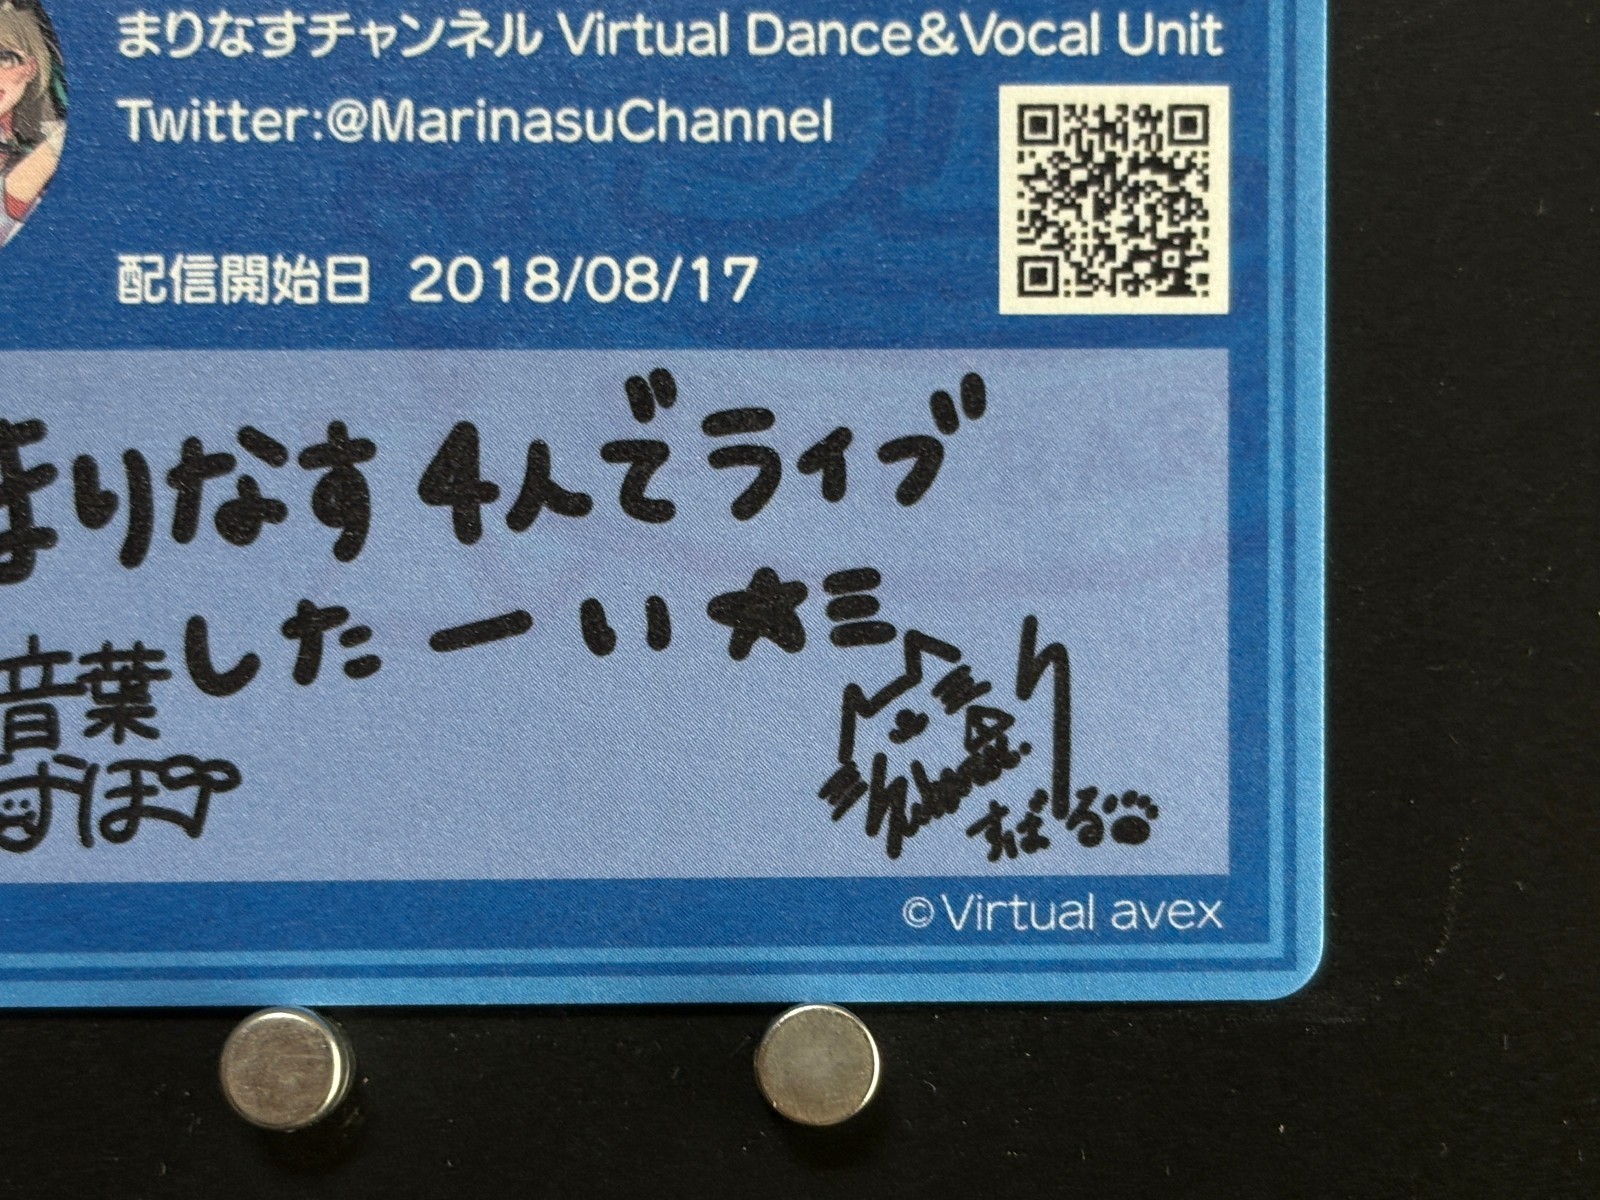 まりなすチャンネル Virtual Dance&Vocal Unit
Twitter:@MarinasuChannel
配信開始日 2018/08/17
まりなす4人でライブ
したーい☆ミ
音葉
すばる
©Virtual avex